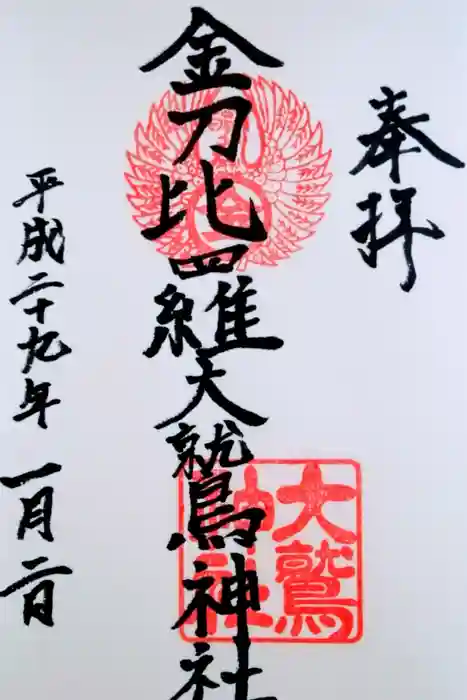 奉拝
金刀比羅大鷲神社
平成二十九年一月二日
大鷲
神社